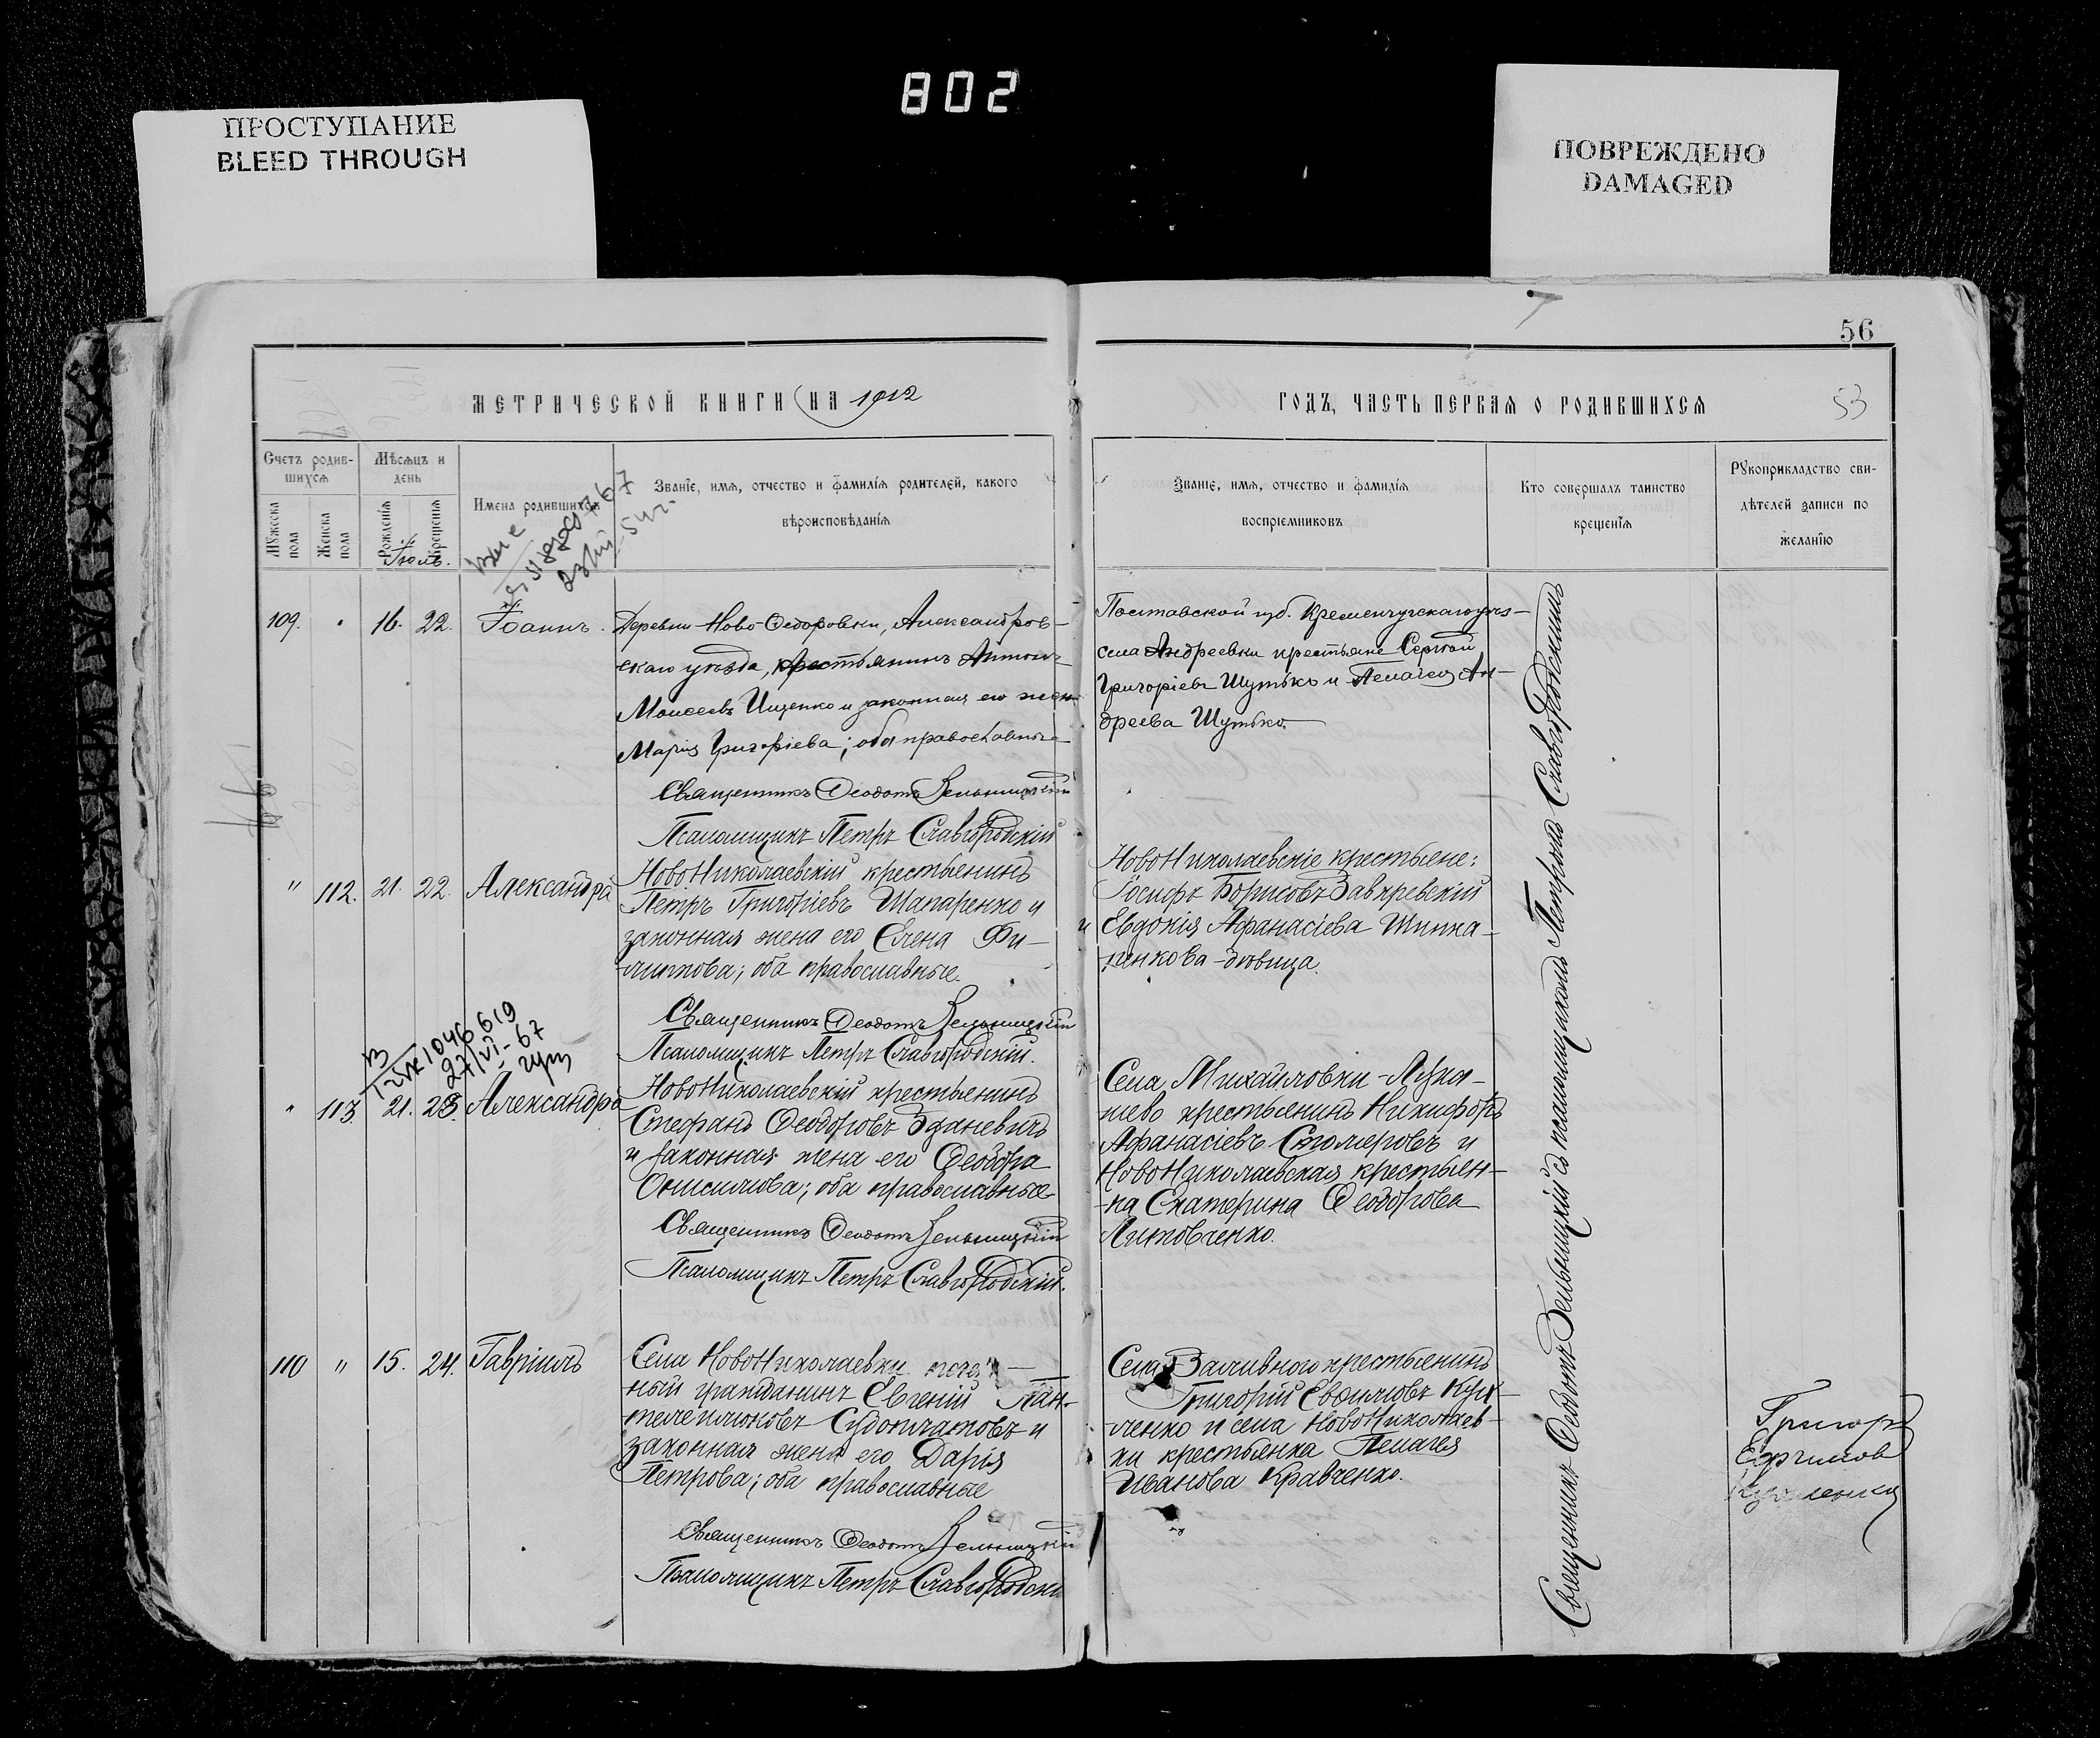 802
ПРОСТУПАНИЕ
BLEED THROUGH
ПОВРЕЖДЕНО
DAMAGED
56
МЕТРИЧЕСКОЙ КНИГИ НА 1912
ГОДЪ, ЧАСТЬ ПЕРВАЯ О РОДИВШИХСЯ
53
Счетъ родив-
шихся
Мужеска пола
Женска пола
Мѣсяцъ и
день
Рожденія
Крещенія
Іюль.
Имена родившихся
Званіе, имя, отчество и фамилія родителей, какого
вѣроисповѣданія
Званіе, имя, отчество и фамилія
воспріемниковъ
Кто совершалъ таинство
крещенія
Рукоприкладство сви-
дѣтелей записи по
желанію
109. " 16. 22. Іоаннъ.
Деревни Ново-Ѳедоровки, Александров-
скаго уѣзда, крестьянинъ Антонъ
Моисеевъ Ищенко и законная его жена
Марія Григоріева; оба православные
Священникъ Ѳеодотъ Зельницкій
Псаломщикъ Петръ Славгородскій
Полтавской губ. Кременчугскаго уѣз-
села Андреевки крестьяне Сергѣй
Григоріевъ Шутько и Пелагея Ан-
дреева Шутько.
" 112. 21. 22. Александра
НовоНиколаевскій крестьянинъ
Петръ Григоріевъ Шапаренко и
законная жена его Елена Фи-
липпова; оба православные.
Священникъ Ѳеодотъ Зельницкій
Псаломщикъ Петръ Славгородскій.
НовоНиколаевскіе крестьяне:
Іосифъ Борисовъ Завкревскій
и Евдокія Афанасіева Шинка-
ренкова-дѣвица.
1046619
27/VI-67
" 113. 21. 23. Александра
НовоНиколаевскій крестьянинъ
Стефанъ Ѳеодоровъ Зданевичъ
и законная жена его Ѳеодора
Онисимова; оба православные.
Священникъ Ѳеодотъ Зельницкій
Псаломщикъ Петръ Славгородскій.
Села Михайловки-Лука-
шево крестьянинъ Никифоръ
Афанасіевъ Столяровъ и
НовоНиколаевская крестьян-
ка Екатерина Ѳеодорова
Литовченко.
110 " 15. 24. Гавріилъ
Села НовоНиколаевки почет-
ный гражданинъ Евгеній Пан-
телеимоновъ и
законная жена его Дарія
Петрова; оба православные
Священникъ Ѳеодотъ Зельницкій
Псаломщикъ Петръ Славгородскій
Села Заливного крестьянинъ
Григорій Евфимовъ
ленко и села НовоНиколаев-
ки крестьянка Пелагея
Иванова Кравченко.
Священникъ Ѳеодотъ Зельницкій съ псаломщикомъ Петромъ Славгородскимъ
Григорій
Ефимов